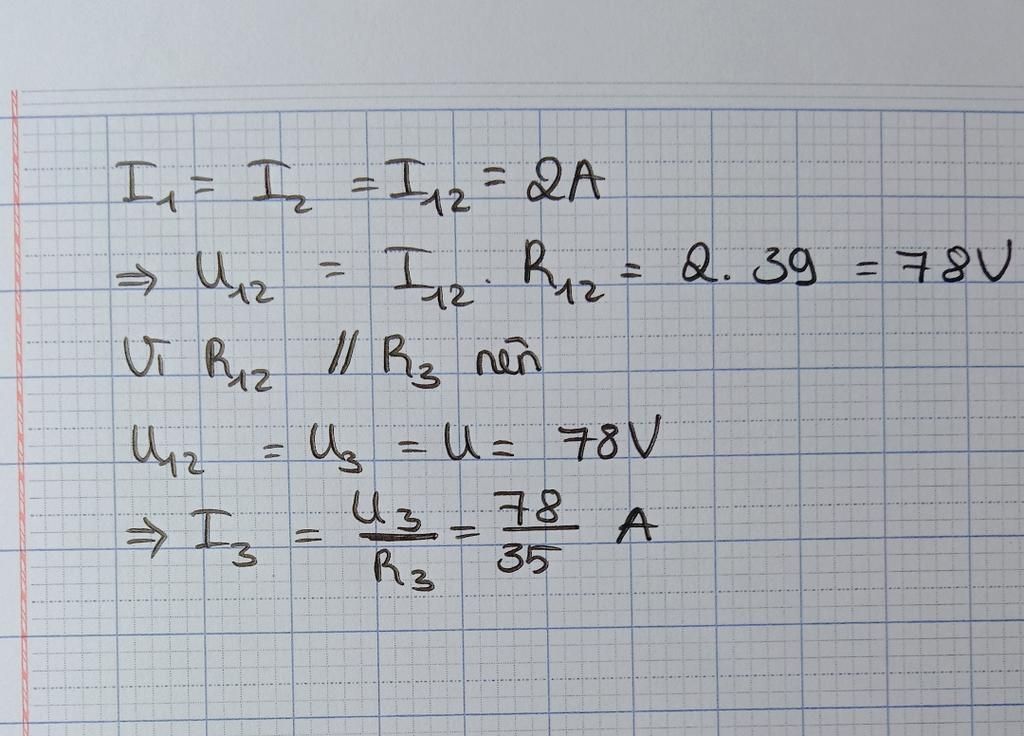 I₁ = I₂ = I₁₂ = 2A
⇒ U₁₂ = I₁₂ . R₁₂ = 2 . 39 = 78V
Vì R₁₂ // R₃ nên
U₁₂ = U₃ = U = 78V
⇒ I₃ = U₃/R₃ = 78/35 A